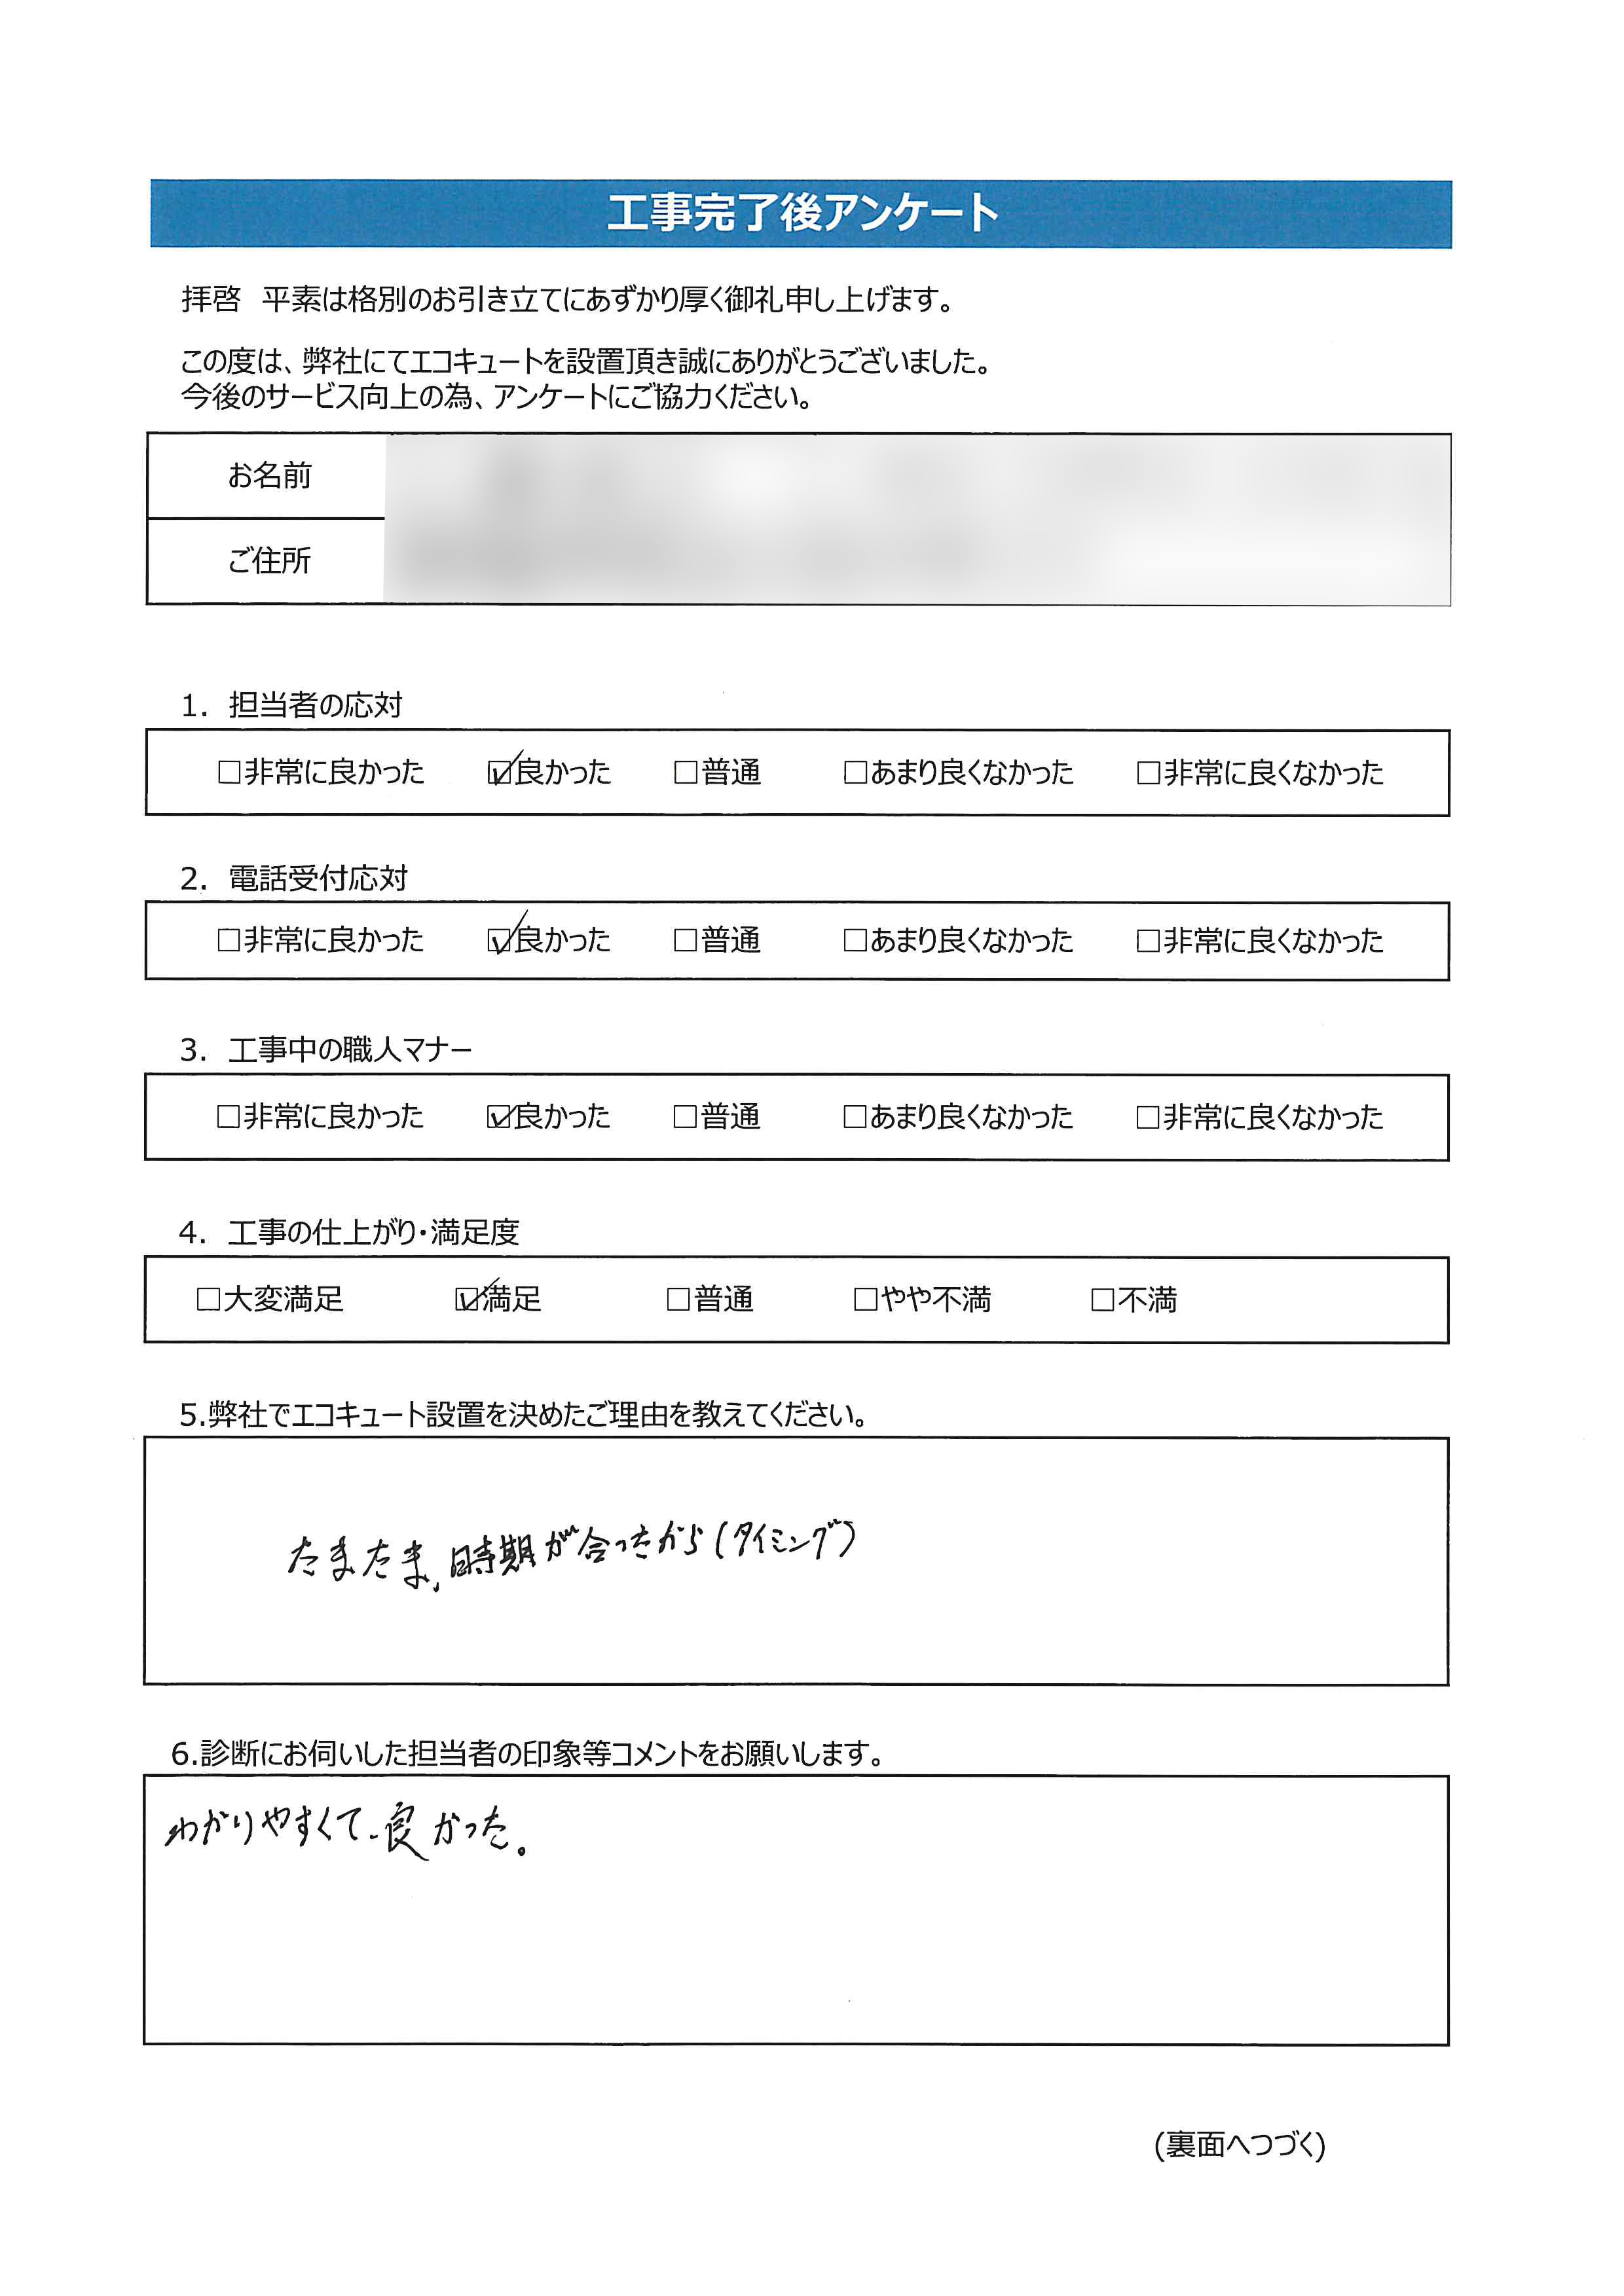 工事完了後アンケート
拝啓　平素は格別のお引き立てにあずかり厚く御礼申し上げます。
この度は、弊社にてエコキュートを設置頂き誠にありがとうございました。
今後のサービス向上の為、アンケートにご協力ください。
お名前
ご住所
1. 担当者の応対
□非常に良かった ☑良かった □普通 □あまり良くなかった □非常に良くなかった
2. 電話受付応対
□非常に良かった ☑良かった □普通 □あまり良くなかった □非常に良くなかった
3. 工事中の職人マナー
□非常に良かった ☑良かった □普通 □あまり良くなかった □非常に良くなかった
4. 工事の仕上がり・満足度
□大変満足 ☑満足 □普通 □やや不満 □不満
5.弊社でエコキュート設置を決めたご理由を教えてください。
たまたま、時期が合ったから(タイミング)
6.診断にお伺いした担当者の印象等コメントをお願いします。
わかりやすくて、良かった。
(裏面へつづく)